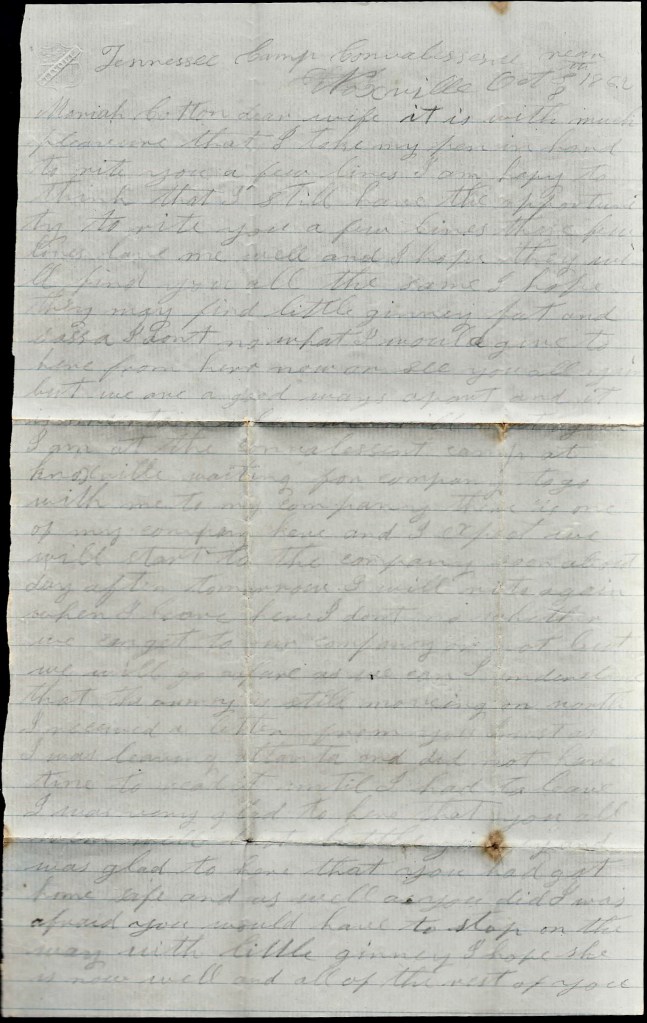 Tennessee Camp Convalessence near
Noxville Oct 8th 1862
Moriah Cotton dear wife it is with much
pleasure that I take my pen in hand
to rite you a few lines I am hapy to
think that I still have the opportuni
ty to rite you a few lines these few
lines leave me well and I hope they wi
ll find you all the same I hope
they may find little ginney fat and
sassa I dont no what I would give to
here from her now or see you all
but we are a good ways apart and it
I am at the convalessent camp at
knoxville waiting for company to go
with me to my companny there is one
of my company here and I expect we
will start to the company soon about
day after tomorrow I will rite again
when I leave here I dont no whether
we can get to our company or not but
we will go as fare as we can I understand
that the army is still moveing on north
I received a letter from you just as
I was leaving atlanta and did not have
time to read it until I had to leave
I was very glad to here that you all
was glad to here that you had got
home safe and as well as you did I was
afraid you would have to stop on the
way with little ginney I hope she
is now well and all of the rest of you